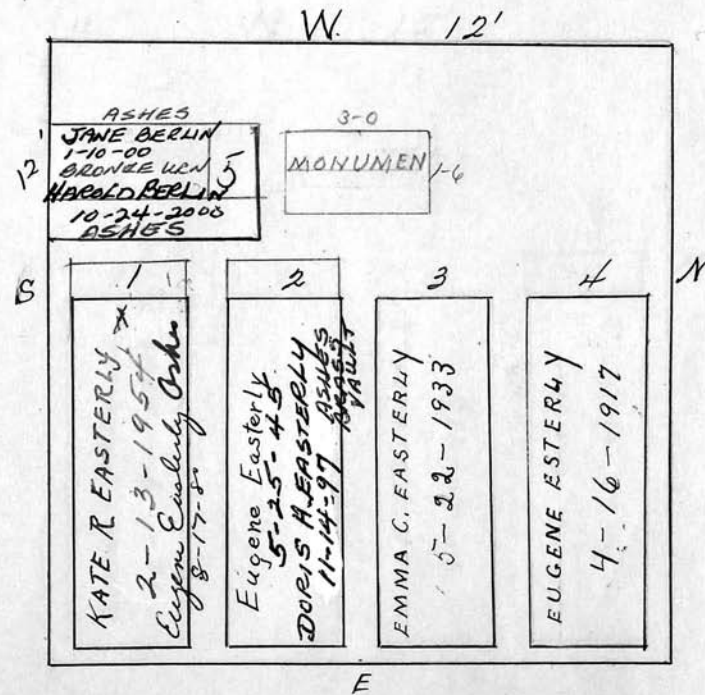 W. 12'
ASHES
JANE BERLIN
1-10-00
BRONZE URN
5
HAROLD BERLIN
10-24-2000
ASHES
12'
3-0
MONUMEN
1-6
S
N
1
2
3
4
KATE R EASTERLY
2-13-1954
Eugene Easterly Ashes
Eugene Easterly
5-25-45
DORIS A. EASTERLY
11-14-97 ASHES
VAULT
EMMA C. EASTERLY
5-22-1933
EUGENE ESTERLY
4-16-1917
E